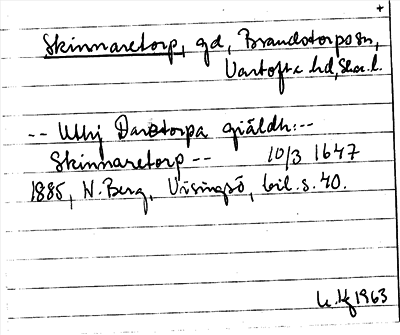 +
Skinnaretorp, gd, Brandstorps sn,
Vartofta hd, Skar. l.
-- Uthj Darstorpa giäldh:--
Skinnaretorp -- 10/3 1647
1885, W. Berg, Visingsö, bil. s. 40.
1963